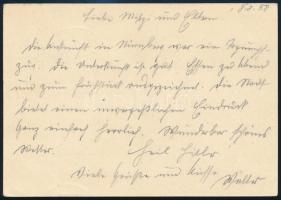 Liebe Mutzi und Eltern
Die Ankunft in Nürnberg war ein
zug. Die Unterkunft ist gut. Essen zu Abend
und zum Frühstück ausgezeichnet. Die Stadt
bietet einen unvergeßlichen Eindruck
Ganz einfach herrlich. Wunderbar schönes
Wetter. Heil Hitler
Viele Grüße und Küsse
Walter